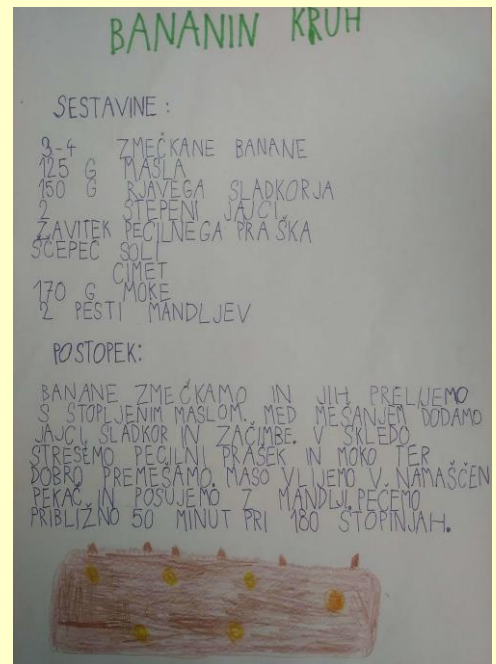 BANANIN KRUH
SESTAVINE:
3-4 ZMEČKANE BANANE
125 G MASLA
150 G RJAVEGA SLADKORJA
2 STEPENI JAJCI
ZAVITEK PECILNEGA PRAŠKA
ŠČEPEC SOLI
CIMET
170 G MOKE
2 PESTI MANDLJEV
POSTOPEK:
BANANE ZMEČKAMO IN JIH PRELIJEMO
S STOPLJENIM MASLOM. MED MEŠANJEM DODAMO
JAJCI, SLADKOR IN ZAČIMBE. V SKLEDO
STRESEMO PECILNI PRAŠEK IN MOKO TER
DOBRO PREMEŠAMO. MASO VLIJEMO V NAMAŠČEN
PEKAČ IN POSUJEMO Z MANDLJI. PEČEMO
PRIBLIŽNO 50 MINUT PRI 180 STOPINJAH.